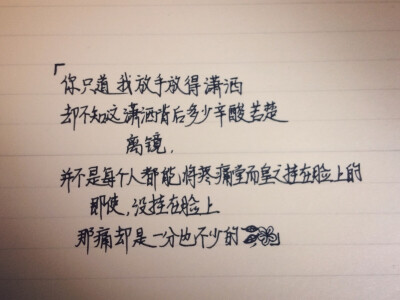 「
你只道我放手放得潇洒
却不知这潇洒背后多少辛酸苦楚
离镜，
并不是每个人都能将疼痛堂而皇之挂在脸上的
即使，没挂在脸上
那痛却是一分也不少的